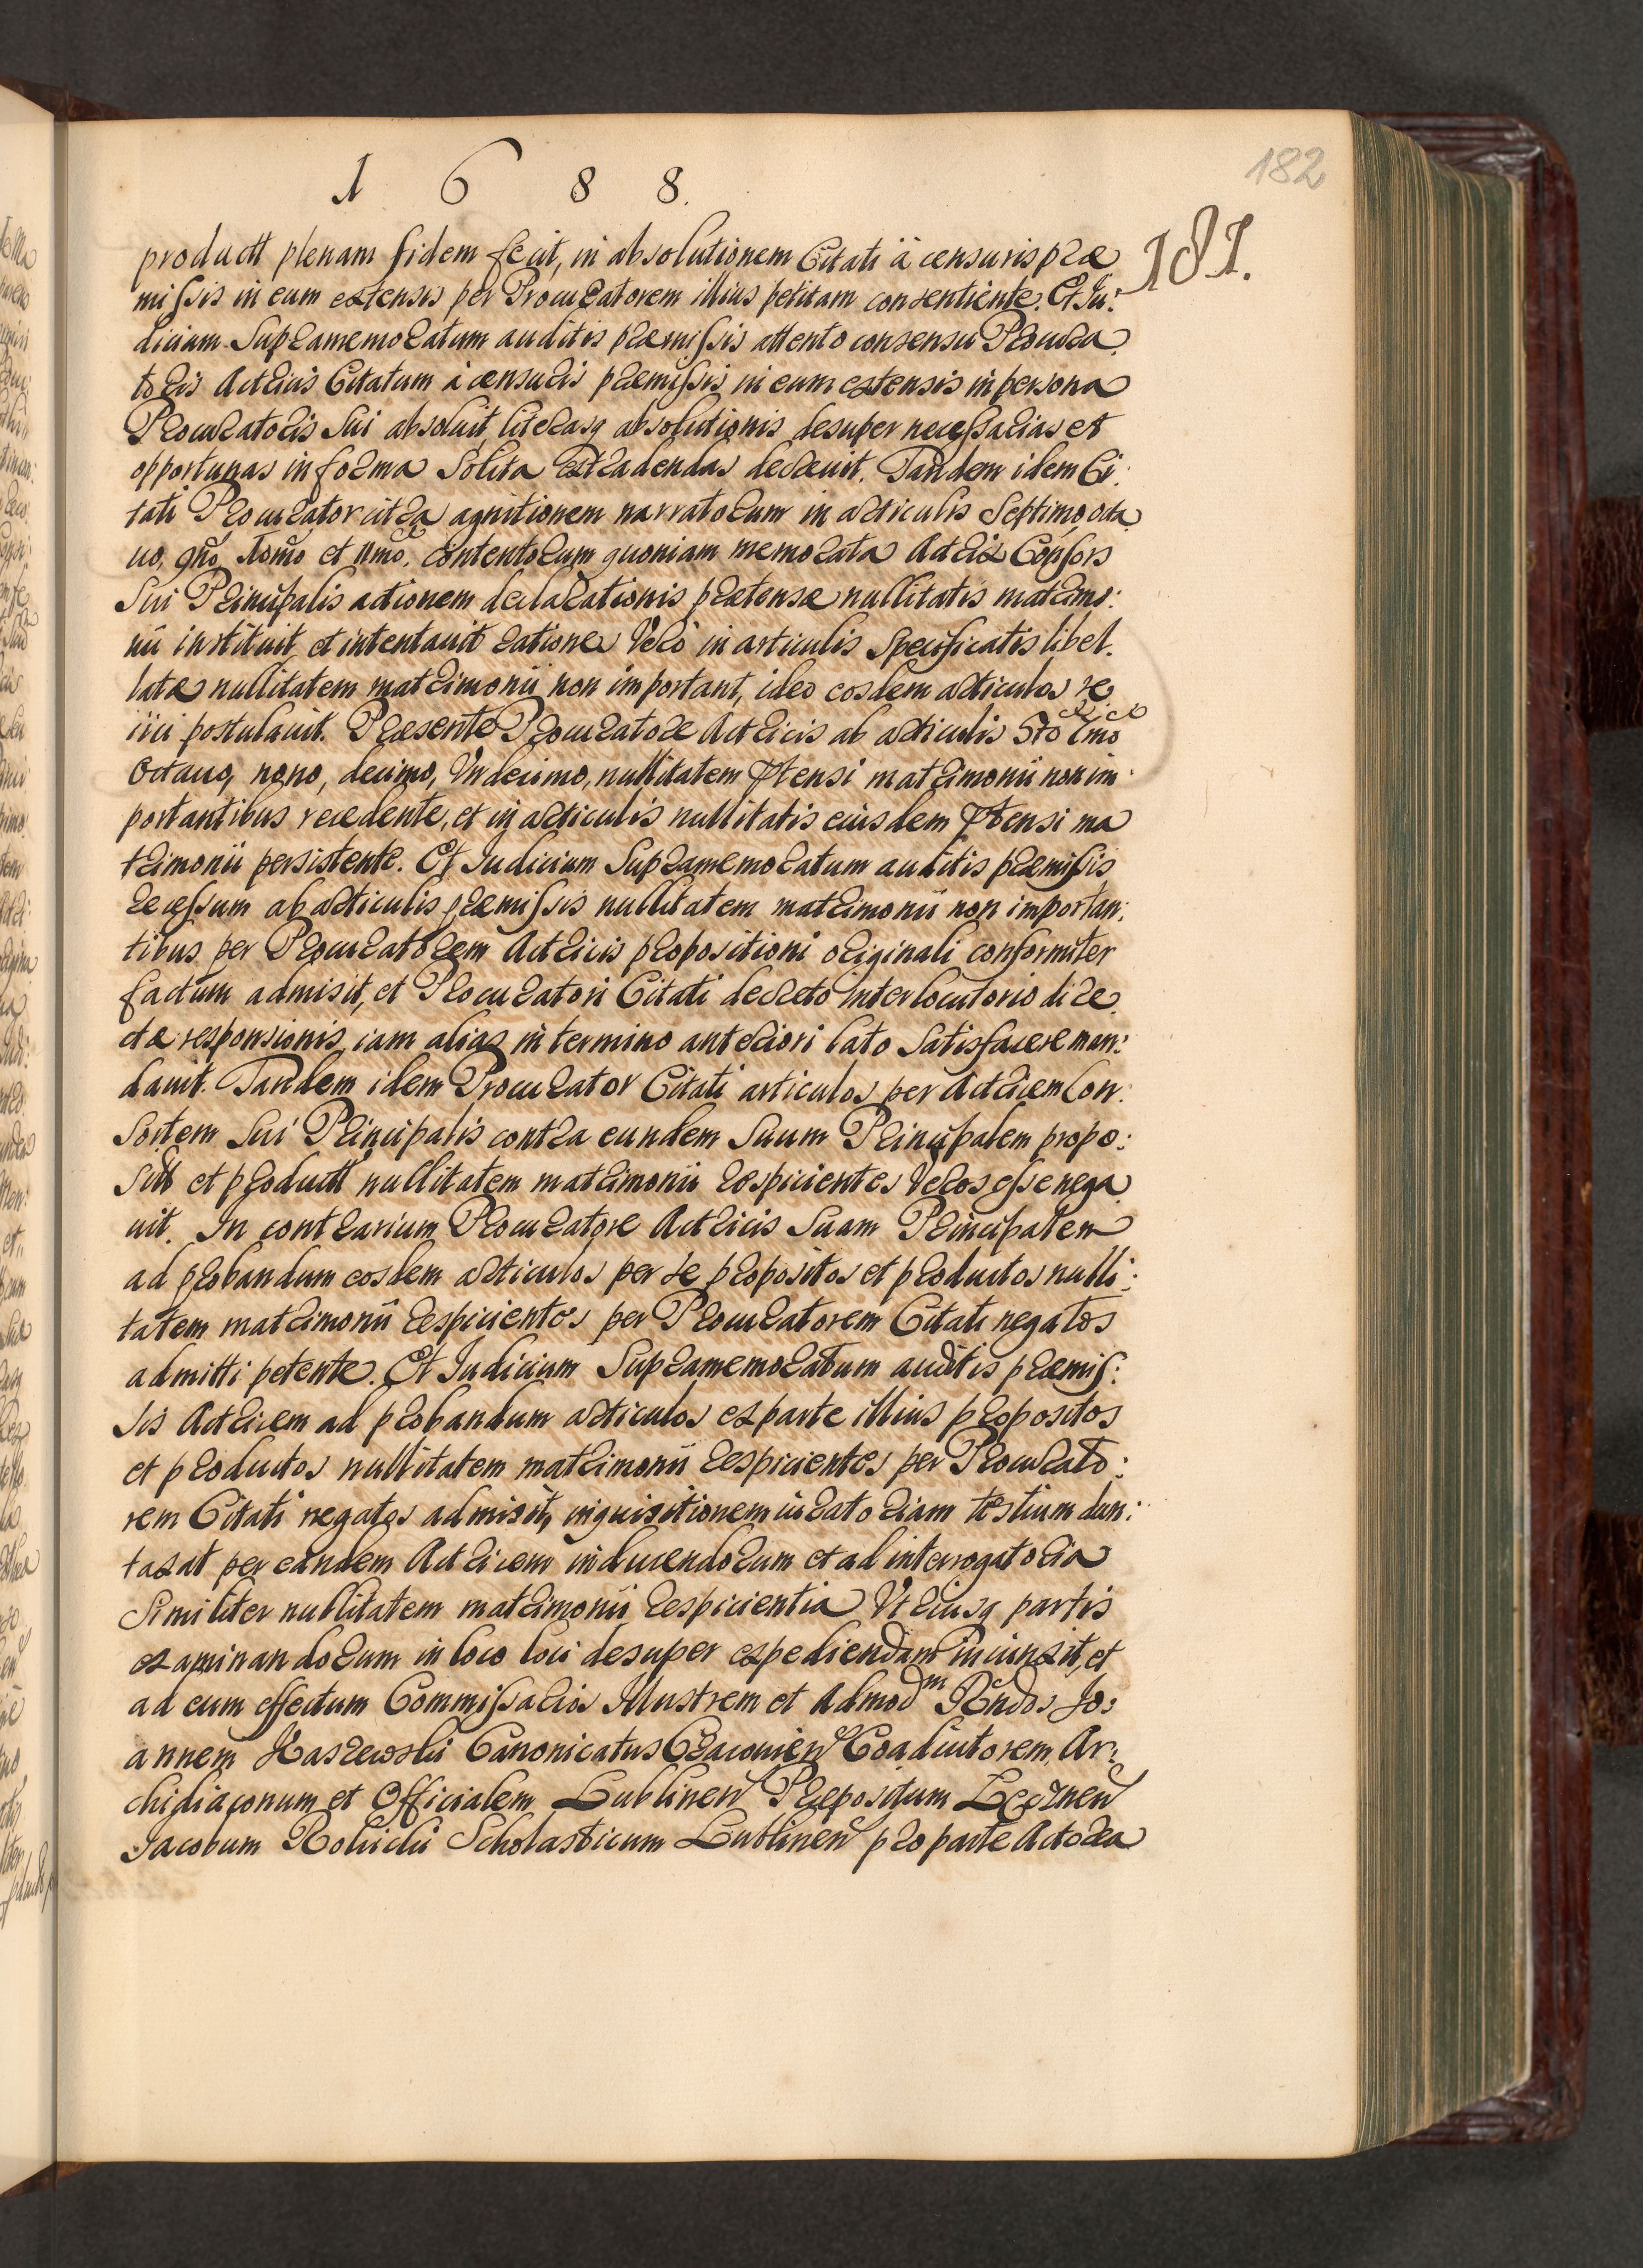 1688.
182
181.
productt plenam fidem fecit, in absolutionem Citati à censuris præ
missis in eum extensis per Procuratorem illius petitam consentiente. Et Iu:
dicium Supramemoratum auditis præmissis attento consensu Procura
toris Actricis Citatum à censuris præmissis in eum extensis in persona
Procuratoris Sui absoluit, literasq absolutionis desuper necessarias et
opportunas in forma Solita extradendas decreuit. Tandem idem Ci:
tati Procurator citra agnitionem narratorum in articulis Septimo, octa
uo, gño, Xomo et Xnmo. contentorum quoniam memorata Actrix Consors
Sui Principalis actionem declarationis prætensæ nullitatis matrimo:
nii instituit et intentauit ratione Verò in articulis Specificatis libel.
latæ nullitatem matrimonii non important, ideo eosdem articulos re
iici postulauit. Præsente Procuratore Actricis ab articulis
Octauo, nono, decimo, Vndecimo, nullitatem ptensi matrimonii non im
portantibus recedente, et in articulis nullitatis eiusdem ptensi ma
trimonii persistente. Et Iudicium Supramemoratum auditis præmissis
recessum ab articulis præmissis nullitatem matrimonii non importan:
tibus per Procuratorem Actricis propositioni originali conformiter
factum admisit, et Procuratori Citati decreto interlocutorio dire
ctæ responsionis iam alias in termino anteriori lato Satisfacere man:
dauit. Tandem idem Procurator Citati articulos per Actricem Con:
Sortem Sui Principalis contra eundem Suum Principalem propo:
Sitt et productt nullitatem matrimonii respicientes Veros esse nega
uit. In contrarium Procuratore Actricis Suam Principalem
ad probandum eosdem articulos per se propositos et productos nulli:
tatem matrimonii respicientes per Procuratorem Citati negatos
admitti petente. Et Iudicium Supramemoratum auditis præmis:
sis Actricem ad probandum articulos ex parte illius propositos
et productos nullitatem matrimonii respicientes per Procurato:
rem Citati negatos admisit, inquisitionem iuratoriam testium dun:
taxat per eandem Actricem inducendorum et ad interrogatoria
Similiter nullitatem matrimonii respicientia Vtriusq partis
examinandorum in loco loci desuper expediendam iniunxit, et
ad eum effectum Commissarios Illustrem et Admodm Rñdos Jo:
annem Kaszewski Canonicatus Cracouien Coadiutorem, Ar:
chidiaconum et Officialem Lublinen Præpositum Lecznen
Jacobum Rolicki Scholasticum Lublinen pro parte Actorea